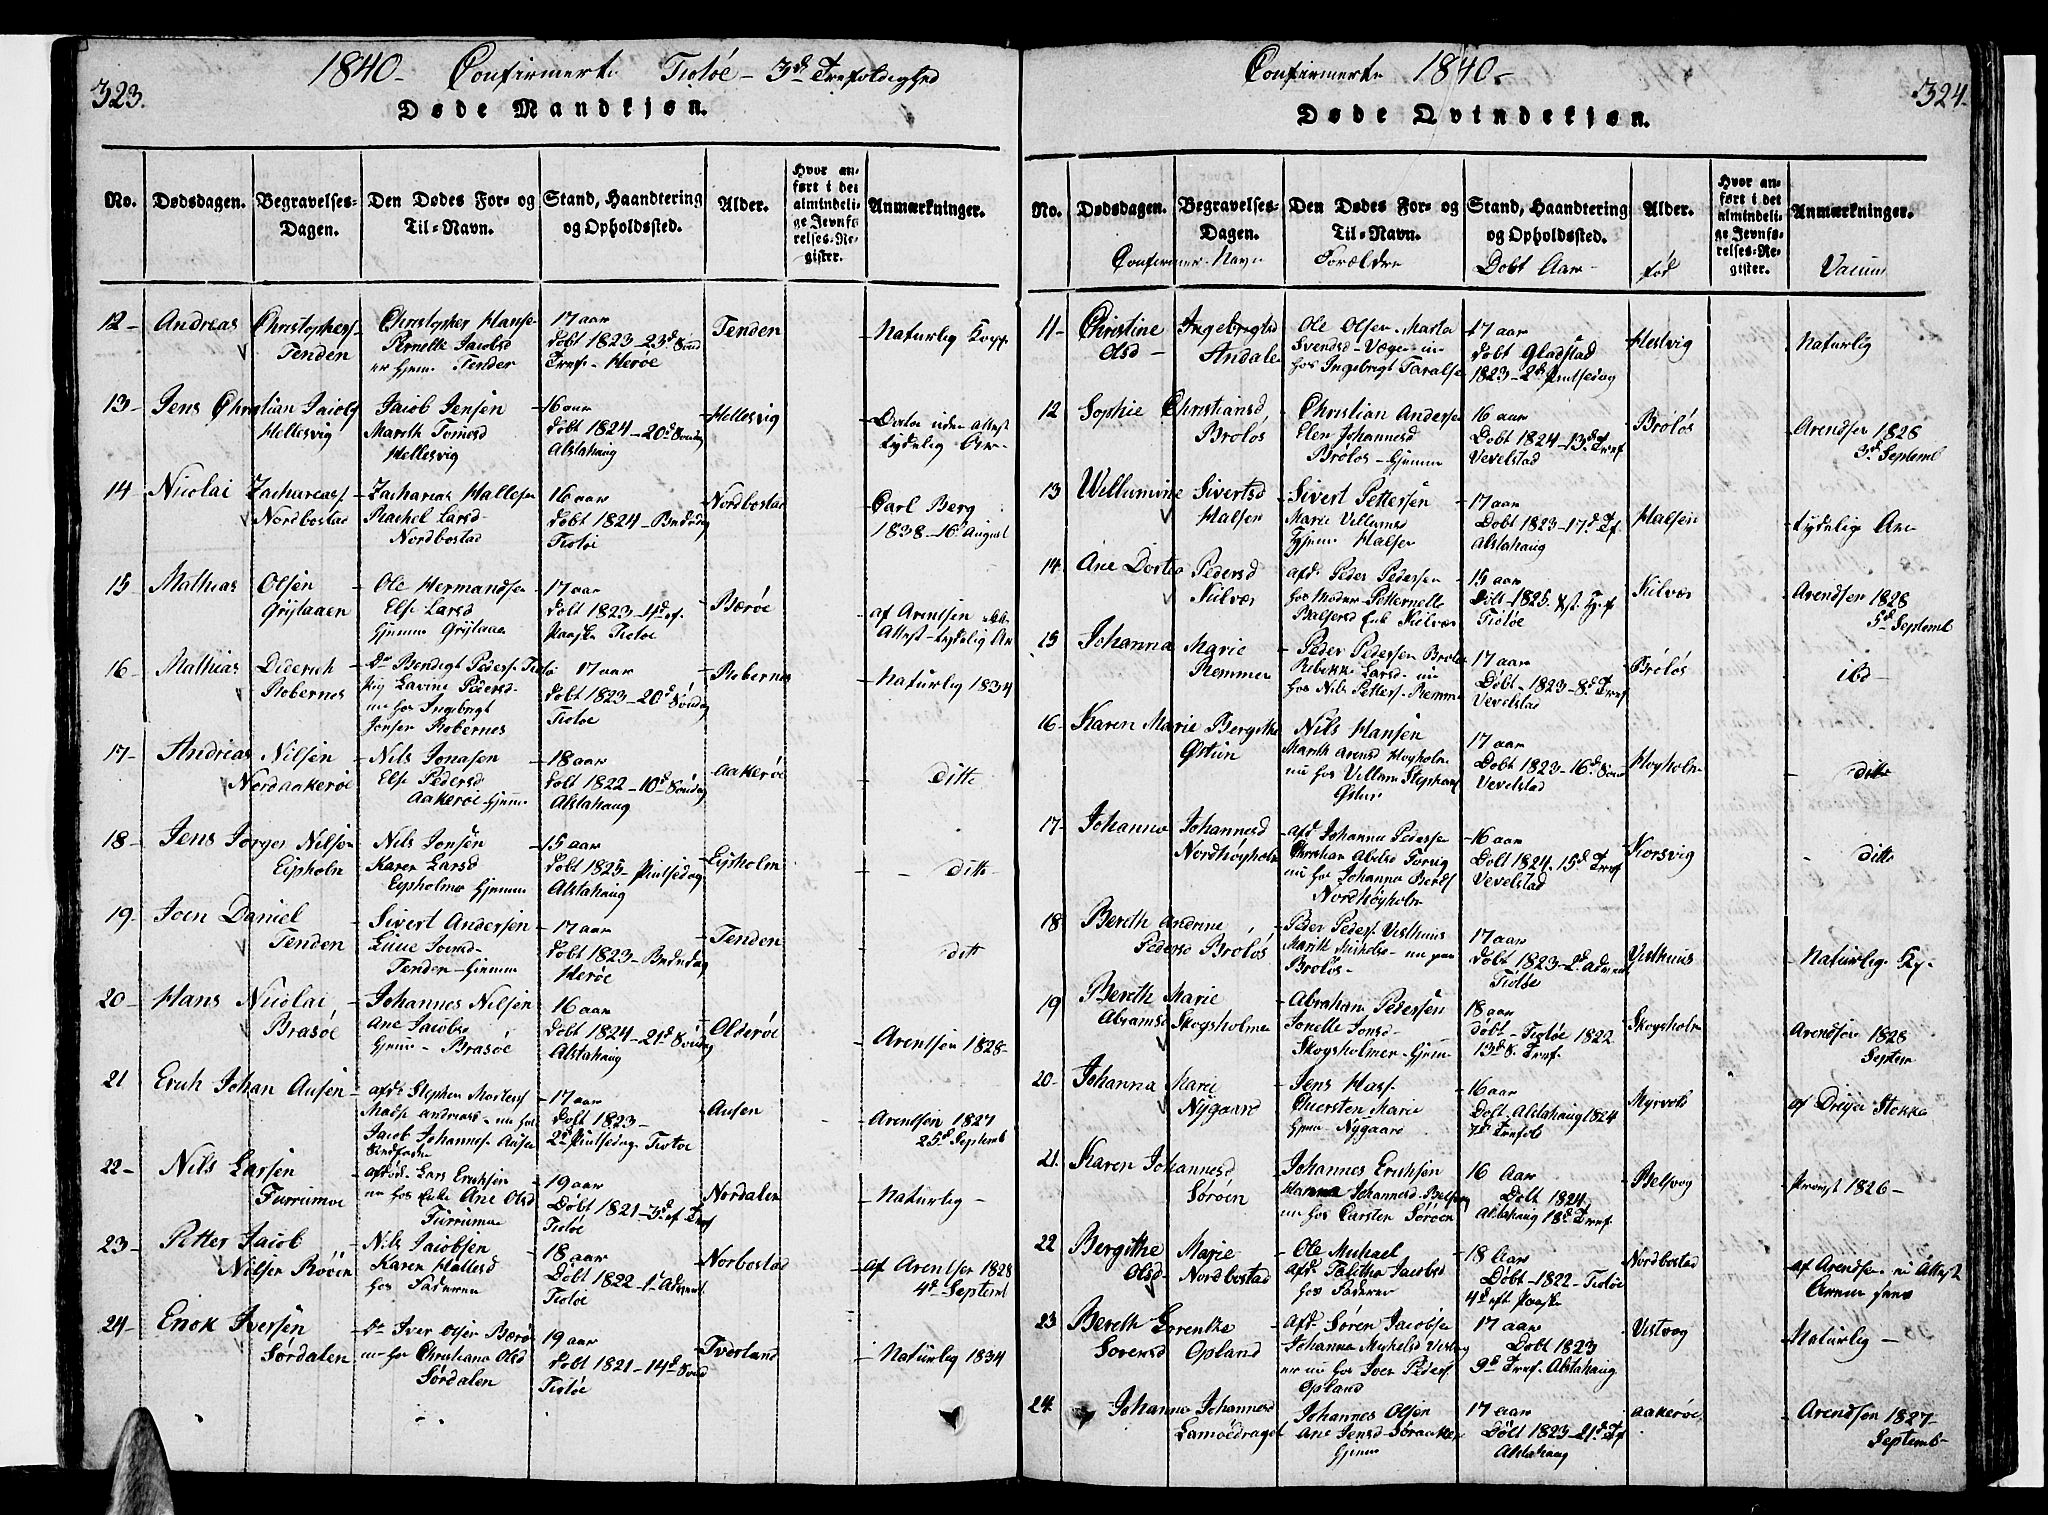 323.
1840 - Confirmerte Tiotøe - 3d Trefoldighed
Døde Mandkjøn.
No. Dødsdagen. Begravelses-Dagen. Den Dødes For- og Til-Navn. Stand, Haandtering og Opholdssted. Alder. Hvor anført i det almindelige Jevnførelses-Register. Anmærkninger.
12 - Andreas Christophers. Tenden
Christopher Hanse
Pernelle Jacobsd
er hjem Tenden
17 aar
Døbt 1823 - 23d Sønd
Tref - Herøe
Tenden
Naturlig Kopp
13 - Jens Christian Jacobs
Hellesvig
Jacob Jensen
Mareth
Hellesvig
16 aar
Døbt 1824 - 20d Søndag
Alstahaug
Hellesvig
uden Attest
tydelig Ar -
14 Nicolai Zachariass
Nordbostad
Zacharias Hallesen
Rachel Larsd -
Nordbostad
16 aar
Døbt 1824 - Bededag
Tiotøe
Nordbostad
Carl Berg
1838 - 16 August
15 Mathias Olsen
Ole Hermandsen
Else Larsd
Hjemme
17 aar
Døbt 1823 - 4d ef.
Paaske Tiotøe
Bærøe
af Arentsen
Attest - tydelig Ar
16 Mathias Diderich
Robernes
Bendigt Peders. Tiotø
Pig Lavine Pedersd -
nu hos Ingebrigt
Jensen Robernes
17 aar
Døbt 1823 - 20d Søndag
Tiotøe
Robernes
Naturlig 1834
17 - Andreas Nilsen
Nordaakerøe
Nils Jonasen
Else Pedersd
Aakerøe - Hjemme
18 aar
Døbt 1822 - 10d Søndag
Alstahaug
Aakerøe
ditte
18 - Jens Jørgen Nilsen
Eipholm
Nils Jonsen
Karen Larsd
Eipholmen Hjemme
15 aar
Døbt 1825 - Pintsedag
Alstahaug
Eipholm
ditte
19 - Joen Daniel
Tenden
Sivert Andersen
Iversd -
Tenden - Hjemme
17 aar
Døbt 1823 - Bededag
Herøe
Tenden
ditt
20 - Hans Nicolai
Brasøe
Johannes Nilsen
Ane Jacobs
Hjemme - Brasøe
16 aar
Døbt 1824 - 21d Søndag
Alstahaug
Olderøe
Arentsen 1828 -
21 Erich Johan Ausen
afd. Stephen Mortens
Andreas - nu hos
Jacob Johannes. Ausen
17 aar
Døbt 1823 -
2d Pintsedag Tiotøe
Ausen
Arentsen 1827
25d Septemb
22 - Nils Larsen
Furrumoe
Lars Erichsen
nu hos Enke Ane Olsd
Furrumoe
19 aar
Døbt 1821 - 3d ef Tref
Tiotøe
Nordalen
Naturlig -
23 - Petter Jacob
Nilsen Røven
Nils Jacobsen
Karen Hallesd
hos Faderen
18 aar
Døbt 1822 - 1d Advent
Tiotøe
Norbostad
af Arentsen 1828
4d Septemb
24 - Enok Iversen
Sørdalen
Iver Olsen Bærø
nu hos Christiana Olsd
Sørdalen
19 aar
Døbt 1821 - 14d Sønd
Tiotøe
Tverland
Naturlig 1834
324.
Confirmerte 1840 -
Døde Qvindekjøn.
No. Dødsdagen. Begravelses-Dagen. Den Dødes For- og Til-Navn. Stand, Haandtering og Opholdssted. Alder. Hvor anført i det almindelige Jevnførelses-Register. Anmærkninger.
Confirmer. Navn Forældre Døbt Aar - Fød Vaccin
11 - Christine Ingebrigtsd
Olsd - Andalen
Ole Olsen. Marta
Svendsd -
hos Ingebrigt Taralse
17 aar
Døbt Gladstad
1823 - 2d Pintsedag
Hestvig
Naturlig
12 Sophie Christiansd,
Brøløs
Christian Andersen
Elen Johannesd
Brøløs - Hjemme
16 aar
Døbt 1824 - 13d Tref
Vevelstad
Brøløs
Arendsen 1828
3d Septemb
13 Willumine Sivertsd
Halsen
Sivert Pettersen
Marie Villumsd
Hjemme Halsen
17 aar
Døbt 1823 - 17d Tf.
Alstahaug
Halsen
tydelig Ar -
14. Ane Dortea Pedersd
Kilvær
afd. Peder Pedersen
hos Moder Petternelle
15 aar
Døbt - 1825.
Tiotøe
Kilvær
Arendsen 1828
5d Septemb
15 Johanna Marie
Remmen
Peder Pedersen Brøløs
Rebekka Larsd - nu
hos Nils Petters. Remmen
17 aar
Døbt - 1823 - 8d Tref
Vevelstad
Brøløs
ibd -
16 - Karen Marie Bergithe
Østun
Nils Hansen
Mareth Arensd Høyholm
nu hos Villum Stephans
17 aar
Døbt 1823 - 16d Sønd
Vevelstad
Høyholm
ditte
17 - Johanna Johannesd
Nordhøyholm
afd. Johannes Pedersen
Abelsd Forvig
nu hos Johannes Berds
Nordhöyholm
16 aar
Døbt 1824. 15d Tref
Vevelstad
Korsvig
ditte
18 Bereth Andrine
Pedersd Brøløs
Peder Peders. Visthuus
Marith - nu paa
Brøløs -
17 aar
Døbt 1823 - 2d Advent
Tiotøe
Visthuus
Naturlig.
19 Bereth Marie
Abramsd Skogsholmen
Abraham Pedersen
Jonelle Jonsd -
Skogsholmen - Hjemme
18 aar
døbt - Tiotøe 1822
13d S. Tref.
Skogsholm
Arendsen 1828
Septem
20 - Johanna Marie
Nygaard
Jens Hass
Chiersten Marie
Hjem Nygaard
16 aar
Døbt. Alstahaug 1824
7d Trefold
Myrvold
af Dreyer Stokka
21. Karen Johannesd
Sørøen
Johannes Erichsen
Hanna Johannesd - Belsvog
nu hos Carsten Sørøen
16 Aar
Døbt 1824,
Alstahaug 18d Tref.
Belsvog
Provst 1826 -
22 Bergithe Marie
Olsd - Nordbostad
Ole Michael
afd. Tabitha Jacobsd
hos Faderen
18 Aar
Døbt - 1822 - Tiotøe
4d eft Paaske
Nordbostad
af Arendsen ei Attest
23 Bereth Lorentze
Sorensd Opland
afd. Søren Jacobsen
Johanna Michelsd Vistvog
er nu hos Iver Peders.
Opland
17 aar
Døbt 1823
9d Tref. Alstahaug
Vistvog
Naturlig -
24. Johanna Johannesd
Lamøedraget
Johannes Olsen
Ane Jensd - Søraaker
Hjem
17 aar
Døbt 1823 - 21d Tf
Alstahaug
Aakerøe
Arendsen 1827 -
Septemb -